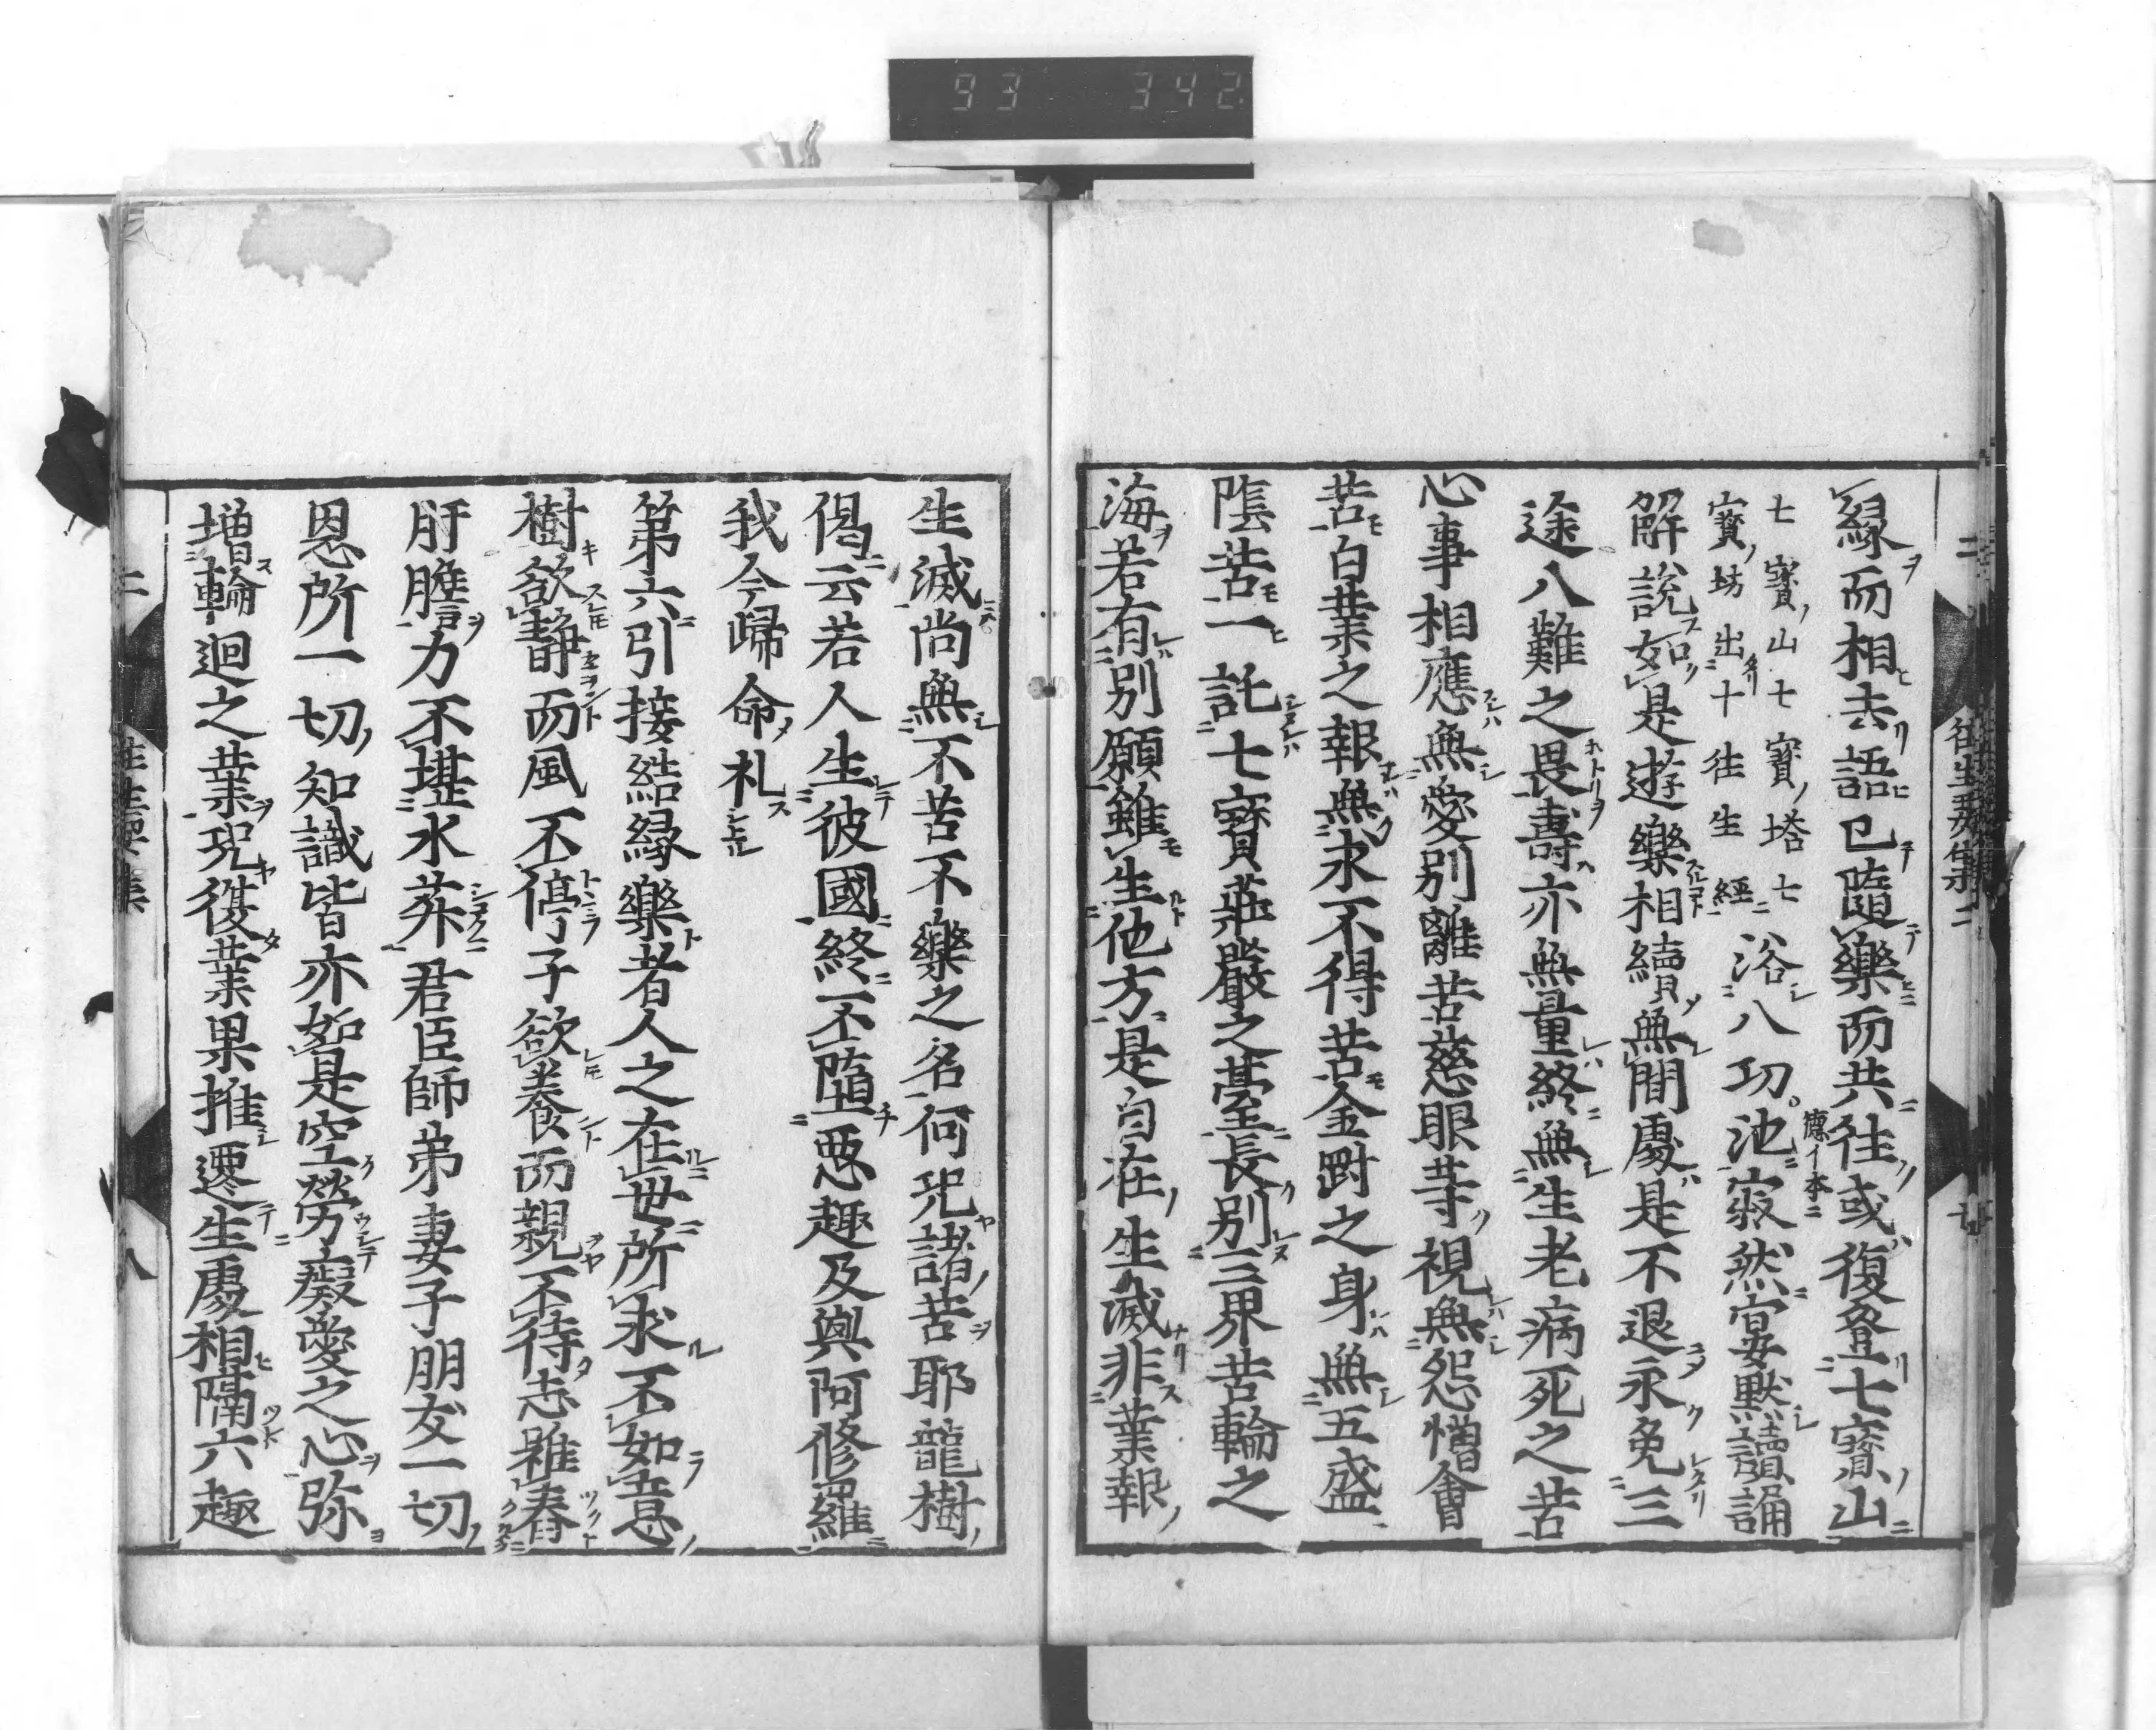 93 342
往生要集二
縁而相去語已隨樂而共往或復登七寳山
七寳山七寳塔七
寳坊出十往生經
浴八功池寂然宴默讀誦
德イ本ニ
解說如是遊樂相續無間處是不退永免三
途八難之畏壽亦無量終無生老病死之苦
心事相應無愛別離苦慈眼等視無怨憎會
苦白業之報無求不得苦金剛之身無五盛
陰苦一託七寶莊嚴之臺長別三界苦輪之
海若有別願雖生他方是自在生滅非業報
生滅尚無不苦不樂之名何況諸苦耶龍樹
偈云若人生彼國終不墮惡趣及與阿修羅
我今歸命礼
第六引接結縁樂者人之在世所求不如意
樹欲靜而風不停子欲養而親不待志雖舂
肝膽力不堪水菽君臣師弟妻子朋友一切
恩所一切知識皆亦如是空勞癡愛之心弥
增輪迴之業況復業果推遷生處相隔六趣